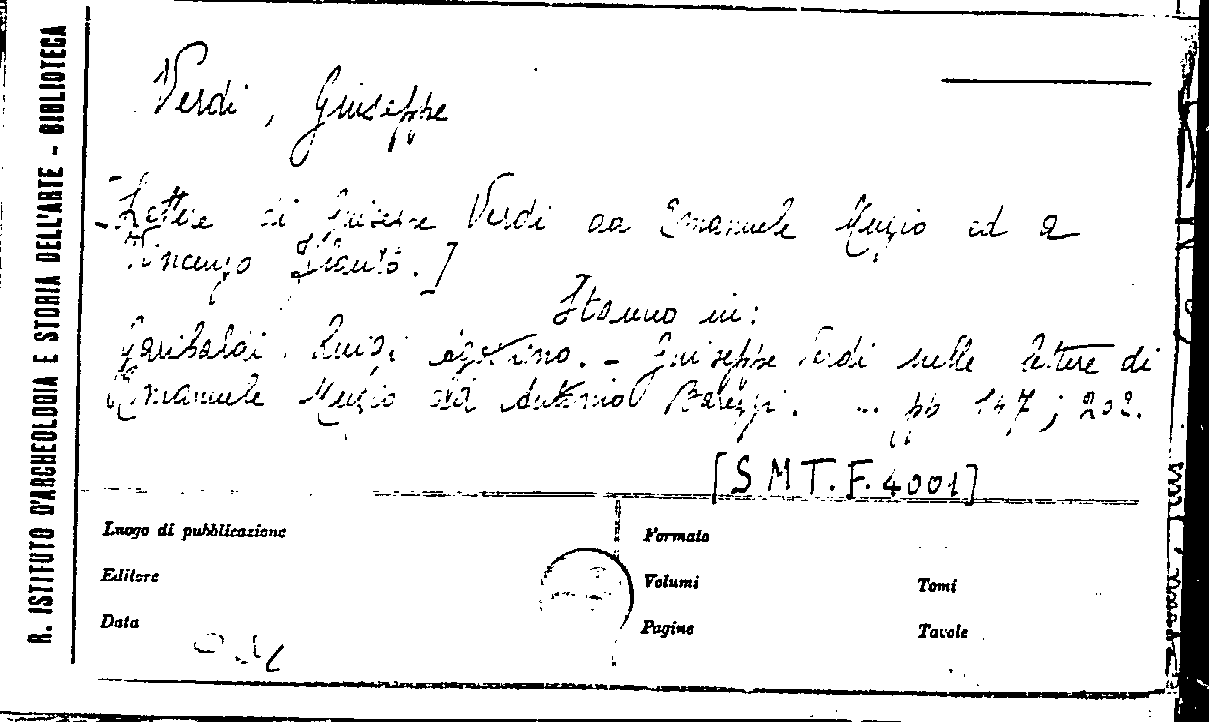 R. ISTITUTO D'ARCHEOLOGIA E STORIA DELL'ARTE - BIBLIOTECA
Verdi, Giuseppe
[Lettere di Giuseppe Verdi ad Emanuele Muzio ed a
Vincenzo .]
Stanno in:
Garibaldi Luigi Agostino. - Giuseppe Verdi nelle lettere di
Emanuele Muzio ad Antonio Barezzi. ... pp 147; 202.
[S M T. F. 4001]
Luogo di pubblicazione
Formato
Editore
Volumi
Tomi
Data
Pagine
Tavole